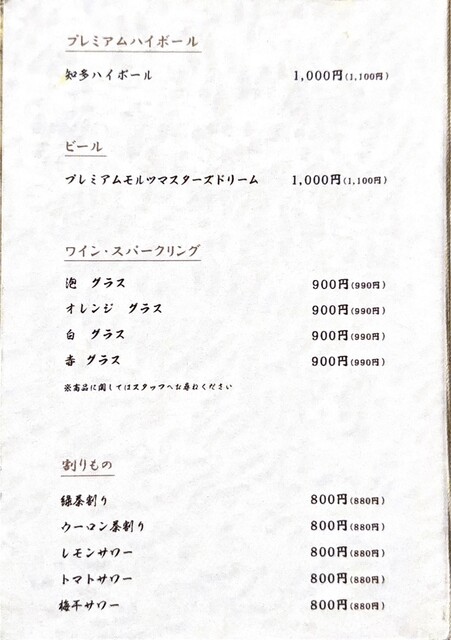 プレミアムハイボール
知多ハイボール 1,000円(1,100円)
ビール
プレミアムモルツマスターズドリーム 1,000円(1,100円)
ワイン・スパークリング
泡 グラス 900円(990円)
オレンジ グラス 900円(990円)
白 グラス 900円(990円)
赤 グラス 900円(990円)
※商品に関してはスタッフへお尋ねください
割りもの
緑茶割り 800円(880円)
ウーロン茶割り 800円(880円)
レモンサワー 800円(880円)
トマトサワー 800円(880円)
梅干サワー 800円(880円)